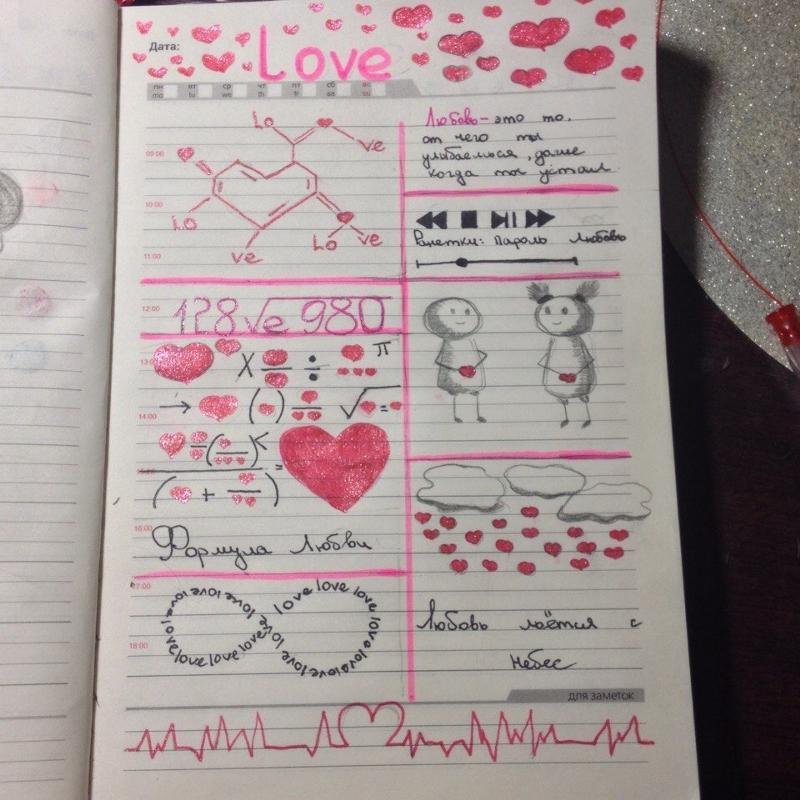 Дата:
Love
пн вт ср чт пт сб вс
mo tu we th fr sa su
Lo ve
09:00
10:00
Lo
ve
Lo ve
11:00
12:00
128√e 980
13:0
X ÷ π
→ ( ) √ = -
14:00
( + ) =
16:00
Формула Любви
17:00
love love love love love love love
love love love love love love love
18:00
Любовь - это то,
от чего ты
улыбаешься, даже
когда ты устал
Ранетки: Пароль Любовь
Любовь льётся с
небес
для заметок